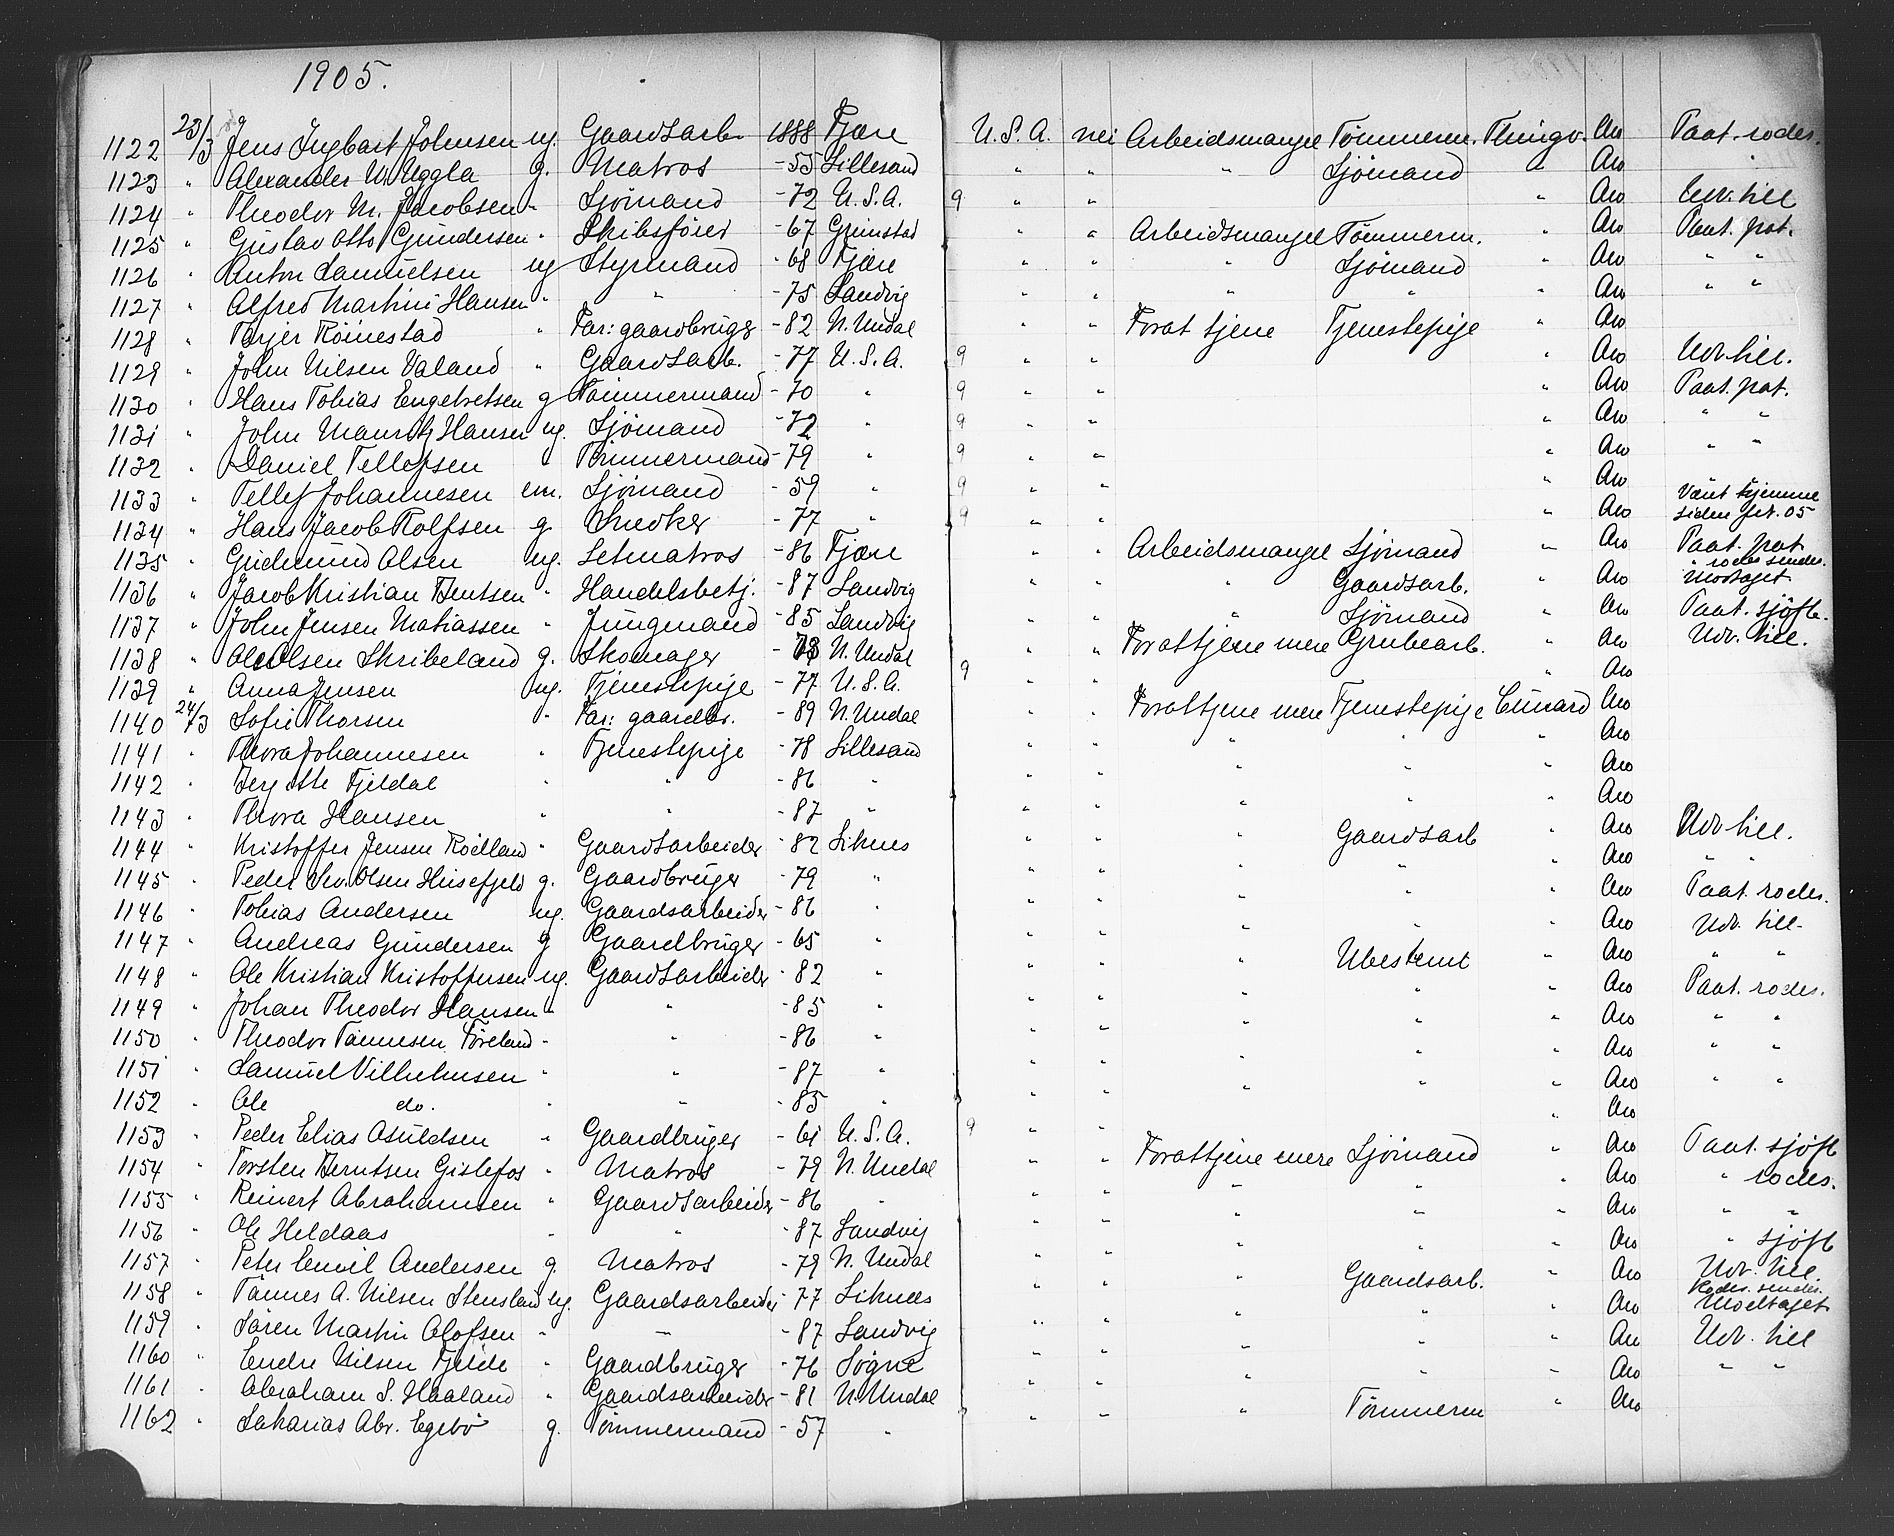 1905.
1122 23/3 Jens Ingbart Johnsen ug. Gaardsarb 1888 Fjære U.S.A. nei Arbeidsmangel Tømmerm. Thingv. Aw Paat. rodes.
1123 " Alexander W. Uggla g. Matros -55 Lillesand " " " Sjømand " Aw "
1124 " Theodor M. Jacobsen " Sjømand -72 U.S.A. 9 " " " Aw Udv. till
1125 " Gustav Otto Gundersen " Skibsfører -67 Grimstad " " Arbeidsmangel Tømmerm. " Aw Paat. pat.
1126 " Anton Samuelsen ug Styrmand -68 Fjære " " " Sjømand " Aw " "
1127 " Alfred Martin Hansen " " -75 Sandvig " " " " " Aw " "
1128 " Terjer Röinestad " Far: gaardbruger -82 N. Undal " " Forat tjene Tjenestepige " Aw
1129 " John Nilsen Valand " Gaardsarb. -77 U.S.A. 9 " " " Aw Udv. till.
1130 " Hans Tobias Engebretsen g Tømmermand -70 " 9 " " " Aw Paat. pat.
1131 " John Mauritz Hansen ug. Sjømand -72 " 9 " " " Aw " "
1132 " Daniel Tellefsen " Tømmermand -79 " 9 " " " Aw " "
1133 " Tellef Johannesen em. Sjømand -59 " 9 " Aw Været hjemme
1134 " Hans Jacob Rolfsen g Snedker -77 " 9 " " " Aw siden 05
1135 " Gudmund Olsen ug. Letmatros -86 Fjære " " Arbeidsmangel Sjømand " Aw Paat. pat
1136 " Jacob Kristian Bentsen " Handelsbetj. -87 Sandvig " " " Gaardsarb. " Aw rodes sendes. Modtaget
1137 " John Jensen Mathiassen " Jungmand -85 Sandvig " " " Sjømand " Aw Paat. sjöfb.
1138 " Ole Olsen Skribeland g. Skomager -73 N. Undal " " Forattjene mere Grubearb. " Aw Udv. till.
1139 " Anna Jensen ug. Tjenestepige -77 U.S.A. 9 " Aw
1140 24/3 Sofie Thorsen " Far: gaardbr. -89 N. Undal " " Forattjene mere Tjenestepige Cunard Aw
1141 " Thora Johannesen " Tjenestepige -78 Lillesand " " " " " Aw
1142 " Bergitte Fjeldal " " -86 " " " " " " Aw
1143 " Thora Hansen " " -87 " " " " " " Aw
1144 " Kristoffer Jensen Rödland " Gaardsarbeider -82 Liknes " " " Gaardsarb " Aw Udv. till.
1145 " Peder Sv. Olsen Husefjeld g. Gaardbruger -79 " " " " " " Aw " "
1146 " Tobias Andersen ug. Gaardsarbeider -86 " " " " " " Aw Paat. rodes.
1147 " Andreas Gundersen g Gaardbruger -65 " " " " " " Aw Udv. till.
1148 " Ole Kristian Kristoffersen ug. Gaardsarbeider -82 " " " " Ubestemt " Aw " "
1149 " Johan Theodor Hansen " " -85 " " " " " " Aw Paat. rodes.
1150 " Theodor Tønnesen Föreland " " -86 " " " " " " Aw " "
1151 " Samuel Vilhelmsen " " -87 " " " " " " Aw " "
1152 " Ole do. " " -85 " " " " " " Aw " "
1153 " Peder Elias Asuldsen " Gaardbruger -61 U.S.A. 9 " " " Aw
1154 " Torsten Berntsen Gislefos " Matros -79 N. Undal " " Forattjene mere Sjømand " Aw Paat. sjöfb
1155 " Reinert Abrahamsen " Gaardsarbeider -86 " " " " " " Aw " rodes.
1156 " Ole Heldaas " " -87 Sandvig " " " " " Aw " "
1157 " Peter Emil Andersen g. Matros -79 N. Undal " " " " " Aw " sjöfb
1158 " Tønnes A. Nilsen Stensland ug. Gaardsarbeider -77 Liknes " " " Gaardsarb. " Aw Udv. till
1159 " Søren Martin Olofsen " " -87 Sandvig " " " " " Aw Rodes. sendes. Modtaget
1160 " Endre Nilsen Fjelde " Gaardbruger -76 Søgne " " " " " Aw Udv. till
1161 " Abraham S. Haaland " Gaardsarbeider -81 N. Undal " " " " " Aw " "
1162 " Sakarias Abr. Egebö g. Tømmermand -57 " " " " Tømmerm " Aw